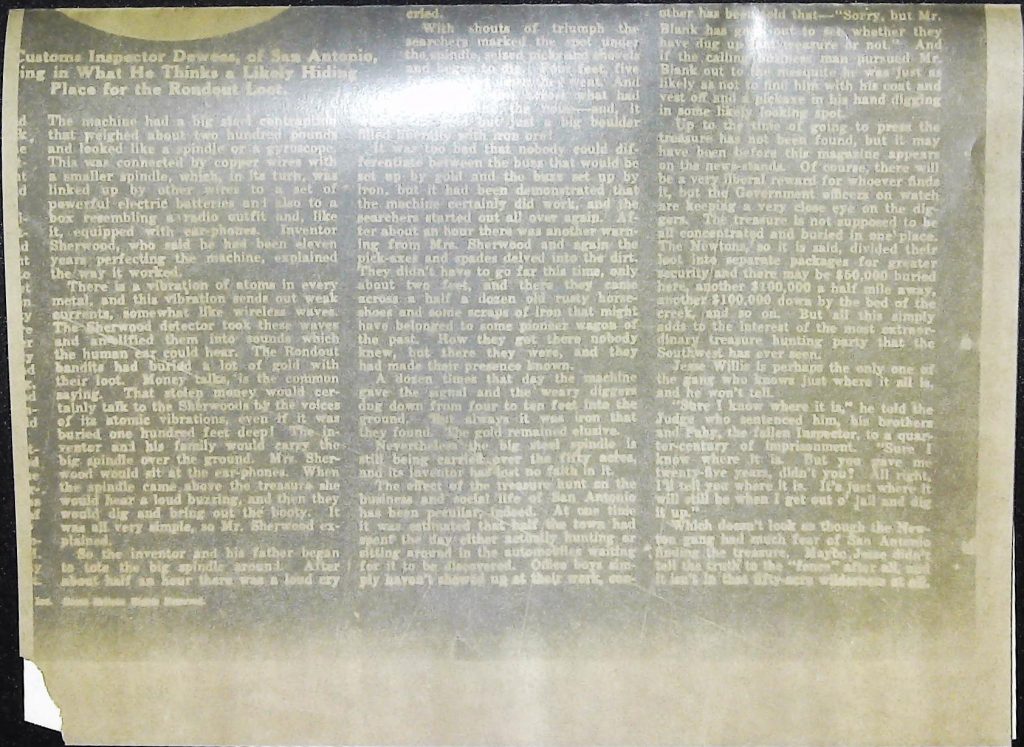 Customs Inspector Dewees, of San Antonio,
ing in What He Thinks a Likely Hiding
Place for the Rondout Loot.
The machine had a big steel contraption
that weighed about two hundred pounds
and looked like a spindle or a gyroscope.
This was connected by copper wires with
a smaller spindle, which, in its turn, was
linked up by other wires to a set of
powerful electric batteries and also to a
box resembling a radio outfit and, like
it, equipped with ear-phones. Inventor
Sherwood, who said he had been eleven
years perfecting the machine, explained
the way it worked.
There is a vibration of atoms in every
metal, and this vibration sends out weak
currents, somewhat like wireless waves.
The Sherwood detector took these waves
and amplified them into sounds which
the human ear could hear. The Rondout
bandits had buried a lot of gold with
their loot. Money talks, is the common
saying. That stolen money would cer-
tainly talk to the Sherwoods by the voices
of its atomic vibrations, even if it was
buried one hundred feet deep! The in-
ventor and his family would carry the
big spindle over the ground. Mrs. Sher-
wood would sit at the ear-phones. When
the spindle came above the treasure she
would hear a loud buzzing, and then they
would dig and bring out the booty. It
was all very simple, so Mr. Sherwood ex-
plained.
So the inventor and his father began
to tote the big spindle around. After
about half an hour there was a loud cry
cried.
With shouts of triumph the
searchers marked the spot under
the spindle, seized picks and shovels
and began to dig. Four feet, five
went. And
what had
it
but just a big boulder
filled liberally with iron ore!
It was too bad that nobody could dif-
ferentiate between the buzz that would be
set up by gold and the buzz set up by
iron, but it had been demonstrated that
the machine certainly did work, and the
searchers started out all over again. Af-
ter about an hour there was another warn-
ing from Mrs. Sherwood and again the
pick-axes and spades delved into the dirt.
They didn't have to go far this time, only
about two feet, and there they came
across a half a dozen old rusty horse-
shoes and some scraps of iron that might
have belonged to some pioneer wagon of
the past. How they got there nobody
knew, but there they were, and they
had made their presence known.
A dozen times that day the machine
gave the signal and the weary diggers
dug down from four to ten feet into the
ground. But always it was iron that
they found. The gold remained elusive.
Nevertheless the big steel spindle is
still being carried over the fifty acres,
and its inventor has lost no faith in it.
The effect of the treasure hunt on the
business and social life of San Antonio
has been peculiar, indeed. At one time
it was estimated that half the town had
spent the day either actually hunting or
sitting around in the automobiles waiting
for it to be discovered. Office boys sim-
ply haven't showed up at their work, cus-
other has been told that—"Sorry, but Mr.
Blank has gone out to see whether they
have dug up that treasure or not." And
if the calling business man pursued Mr.
Blank out to the mesquite he was just as
likely as not to find him with his coat and
vest off and a pickaxe in his hand digging
in some likely looking spot.
Up to the time of going to press the
treasure has not been found, but it may
have been before this magazine appears
on the news-stands. Of course, there will
be a very liberal reward for whoever finds
it, but the Government officers on watch
are keeping a very close eye on the dig-
gers. The treasure is not supposed to be
all concentrated and buried in one place.
The Newtons, so it is said, divided their
loot into separate packages for greater
security and there may be $50,000 buried
here, another $100,000 a half mile away,
another $100,000 down by the bed of the
creek, and so on. But all this simply
adds to the interest of the most extraor-
dinary treasure hunting party that the
Southwest has ever seen.
Jesse Willis is perhaps the only one of
the gang who knows just where it all is,
and he won't tell.
"Sure I know where it is," he told the
Judge who sentenced him, his brothers
and Fahy, the fallen Inspector, to a quar-
ter-century of imprisonment. "Sure I
know where it is. But you gave me
twenty-five years, didn't you? All right,
I'll tell you where it is. It's just where it
will still be when I get out o' jail and dig
it up."
Which doesn't look as though the New-
ton gang had much fear of San Antonio
finding the treasure. Maybe Jesse didn't
tell the truth to the "fence" after all, and
it isn't in that fifty-acre wilderness at all.